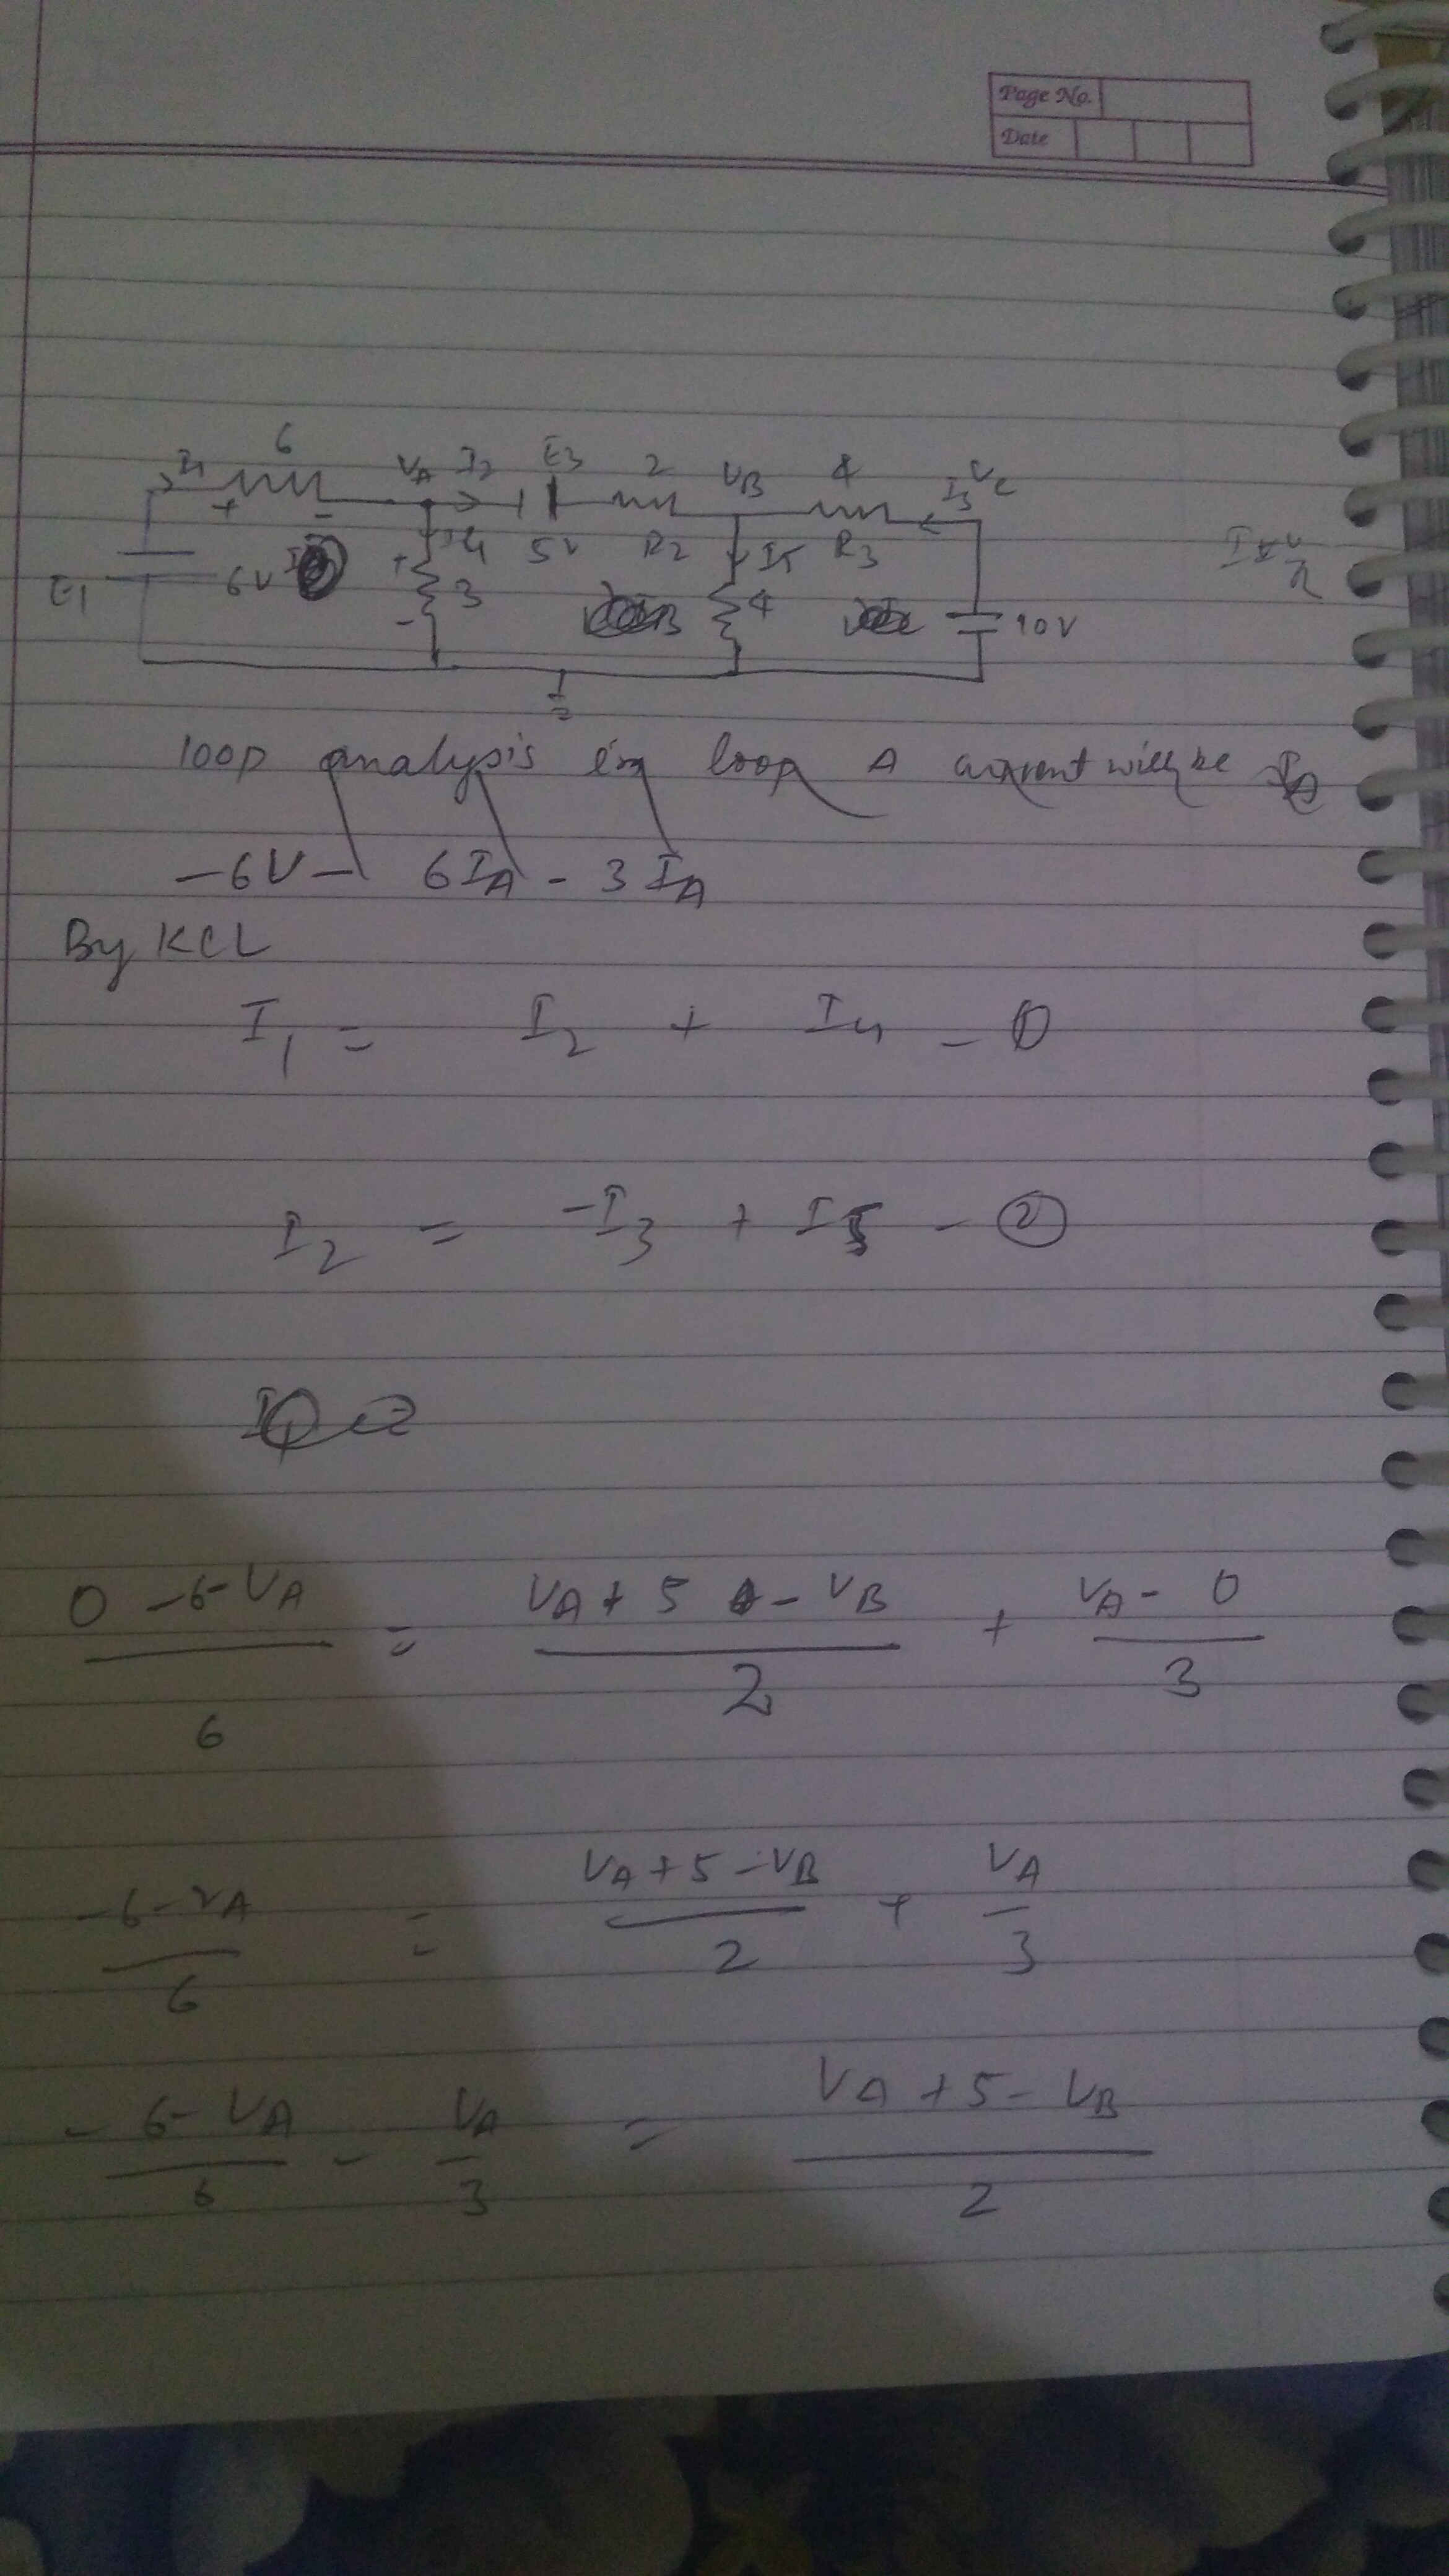 Page No.
Date
6
I1 + -
VA I2 E3 2 VB 4 I3 VC
E1 6V + I4 3 - 5V R2 I5 4 R3 10V
loop analysis in loop A current will be IA
-6V - 6IA - 3IA
By KCL
I1 = I2 + I4 - ①
I2 = -I3 + I5 - ②
0 - 6 - VA / 6 = VA + 5 - VB / 2 + VA - 0 / 3
-6 - VA / 6 = VA + 5 - VB / 2 + VA / 3
-6 - VA / 6 - VA / 3 = VA + 5 - VB / 2